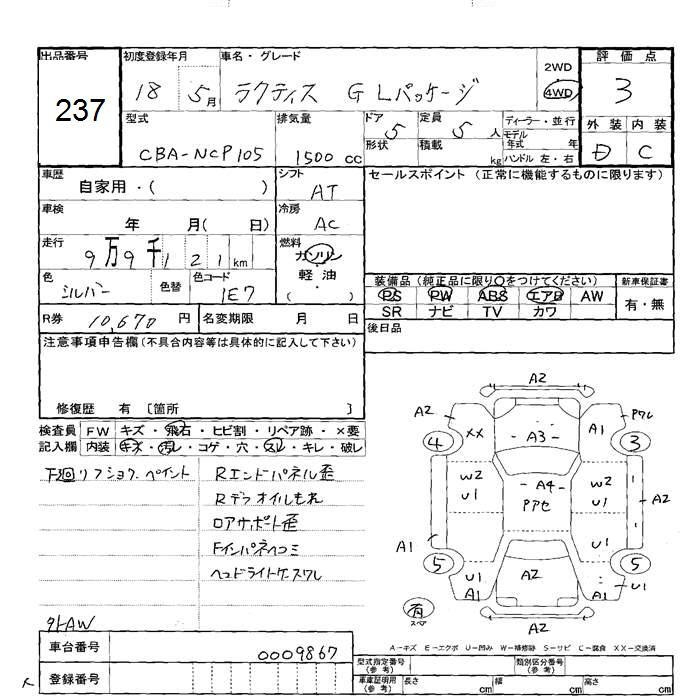 出品番号
237
初度登録年月
18 5月
車名・グレード
ラクティス G Lパッケージ
2WD
4WD
評価点
3
外装 内装
D C
型式
CBA-NCP105
排気量
1500 cc
ドア 5
形状
定員 5 人
積載 kg
ディーラー・並行
モデル年式 年
ハンドル 左・右
車歴
自家用・( )
シフト
AT
セールスポイント (正常に機能するものに限ります)
車検
年 月( 日)
冷房
AC
走行
9万9千121km
燃料
ガソリン
軽油
( )
色
シルバー
色替
色コード
1E7
装備品 (純正品に限り○をつけてください)
PS PW ABS エアB AW
SR ナビ TV カワ
新車保証書
有・無
R券 10,670 円
名変期限 月 日
後日品
注意事項申告欄 (不具合内容等は具体的に記入して下さい)
修復歴 有 [箇所 ]
検査員記入欄
FW キズ・飛石・ヒビ割・リペア跡・×要
内装 キズ・汚レ・コゲ・穴・スレ・キレ・破レ
下廻リフショク.ペイント
Rエンドパネル歪
Rデフオイルもれ
ロアサポート歪
Fインパネヘコミ
ヘッドライトケースワレ
外AW
A2
A2
XX
-A3-
A1
ワレ
4
3
W2
U1
-A4-
アアセ
W2
U1
A2
A1
U1
5
5
U1
A1
A2
A1
U1
有
スペア
A2
A-キズ E-エクボ U-凹み W-補修跡 S-サビ C-腐食 XX-交換済
車台番号
0009867
登録番号
型式指定番号
(参考)
類別区分番号
(参考)
車庫証明用
(参考)
長さ cm
幅 cm
高さ cm